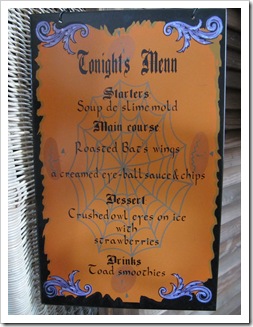 Tonights Menu
Starters
Soup de slime mold
Main course
Roasted Bat's wings
a creamed eye-ball sauce & chips
Dessert
Crushed owl eyes on ice
with
strawberries
Drinks
Toad smoothies